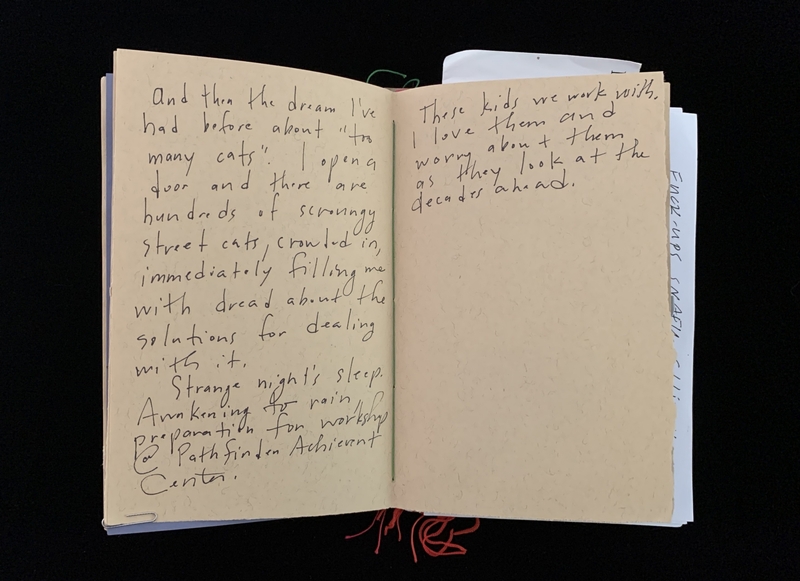 And then the dream I've
had before about "too
many cats". I open a
door and there are
hundreds of scroungy
street cats, crowded in,
immediately filling me
with dread about the
solutions for dealing
with it.
Strange night's sleep.
Awakening to rain,
preparation for workshop
@ Pathfinder Achievent
Center.
These kids we work with.
I love them and
worry about them
as they look at the
decades ahead.